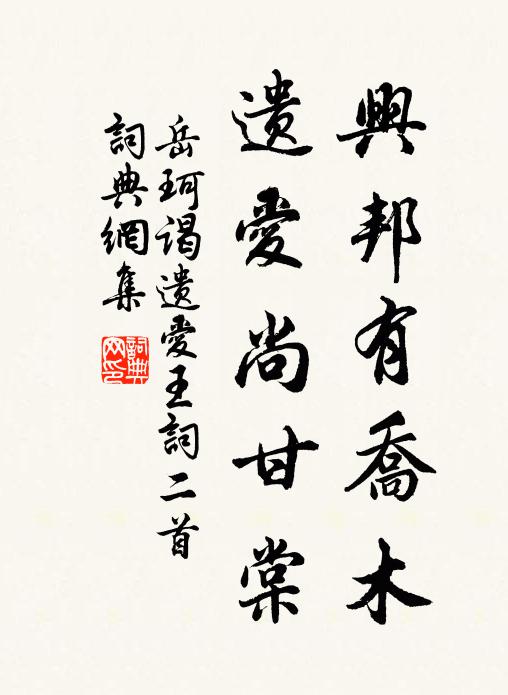 興邦有喬木
遺愛尚甘棠
岳珂謁遺愛王詞二首
詞典網集
詞典網印